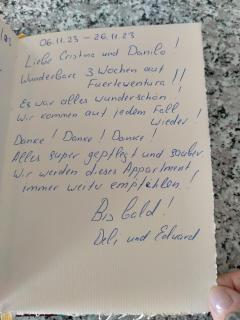 06.11.23 – 26.11.23
Liebe Cristina und Danilo!
Wunderbare 3 Wochen auf
Fuerteventura!!
Es war alles wunderschön!
Wir kommen auf jedem Fall
wieder!
Danke! Danke! Danke!
Alles super gepflegt und sauber.
Wir werden dieses Appartment
immer weiter empfehlen!
Bis bald!
Deli und Eduard